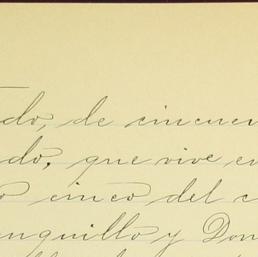 do, de cincuen
do, que vive en
o cinco del c
nquillo y Don